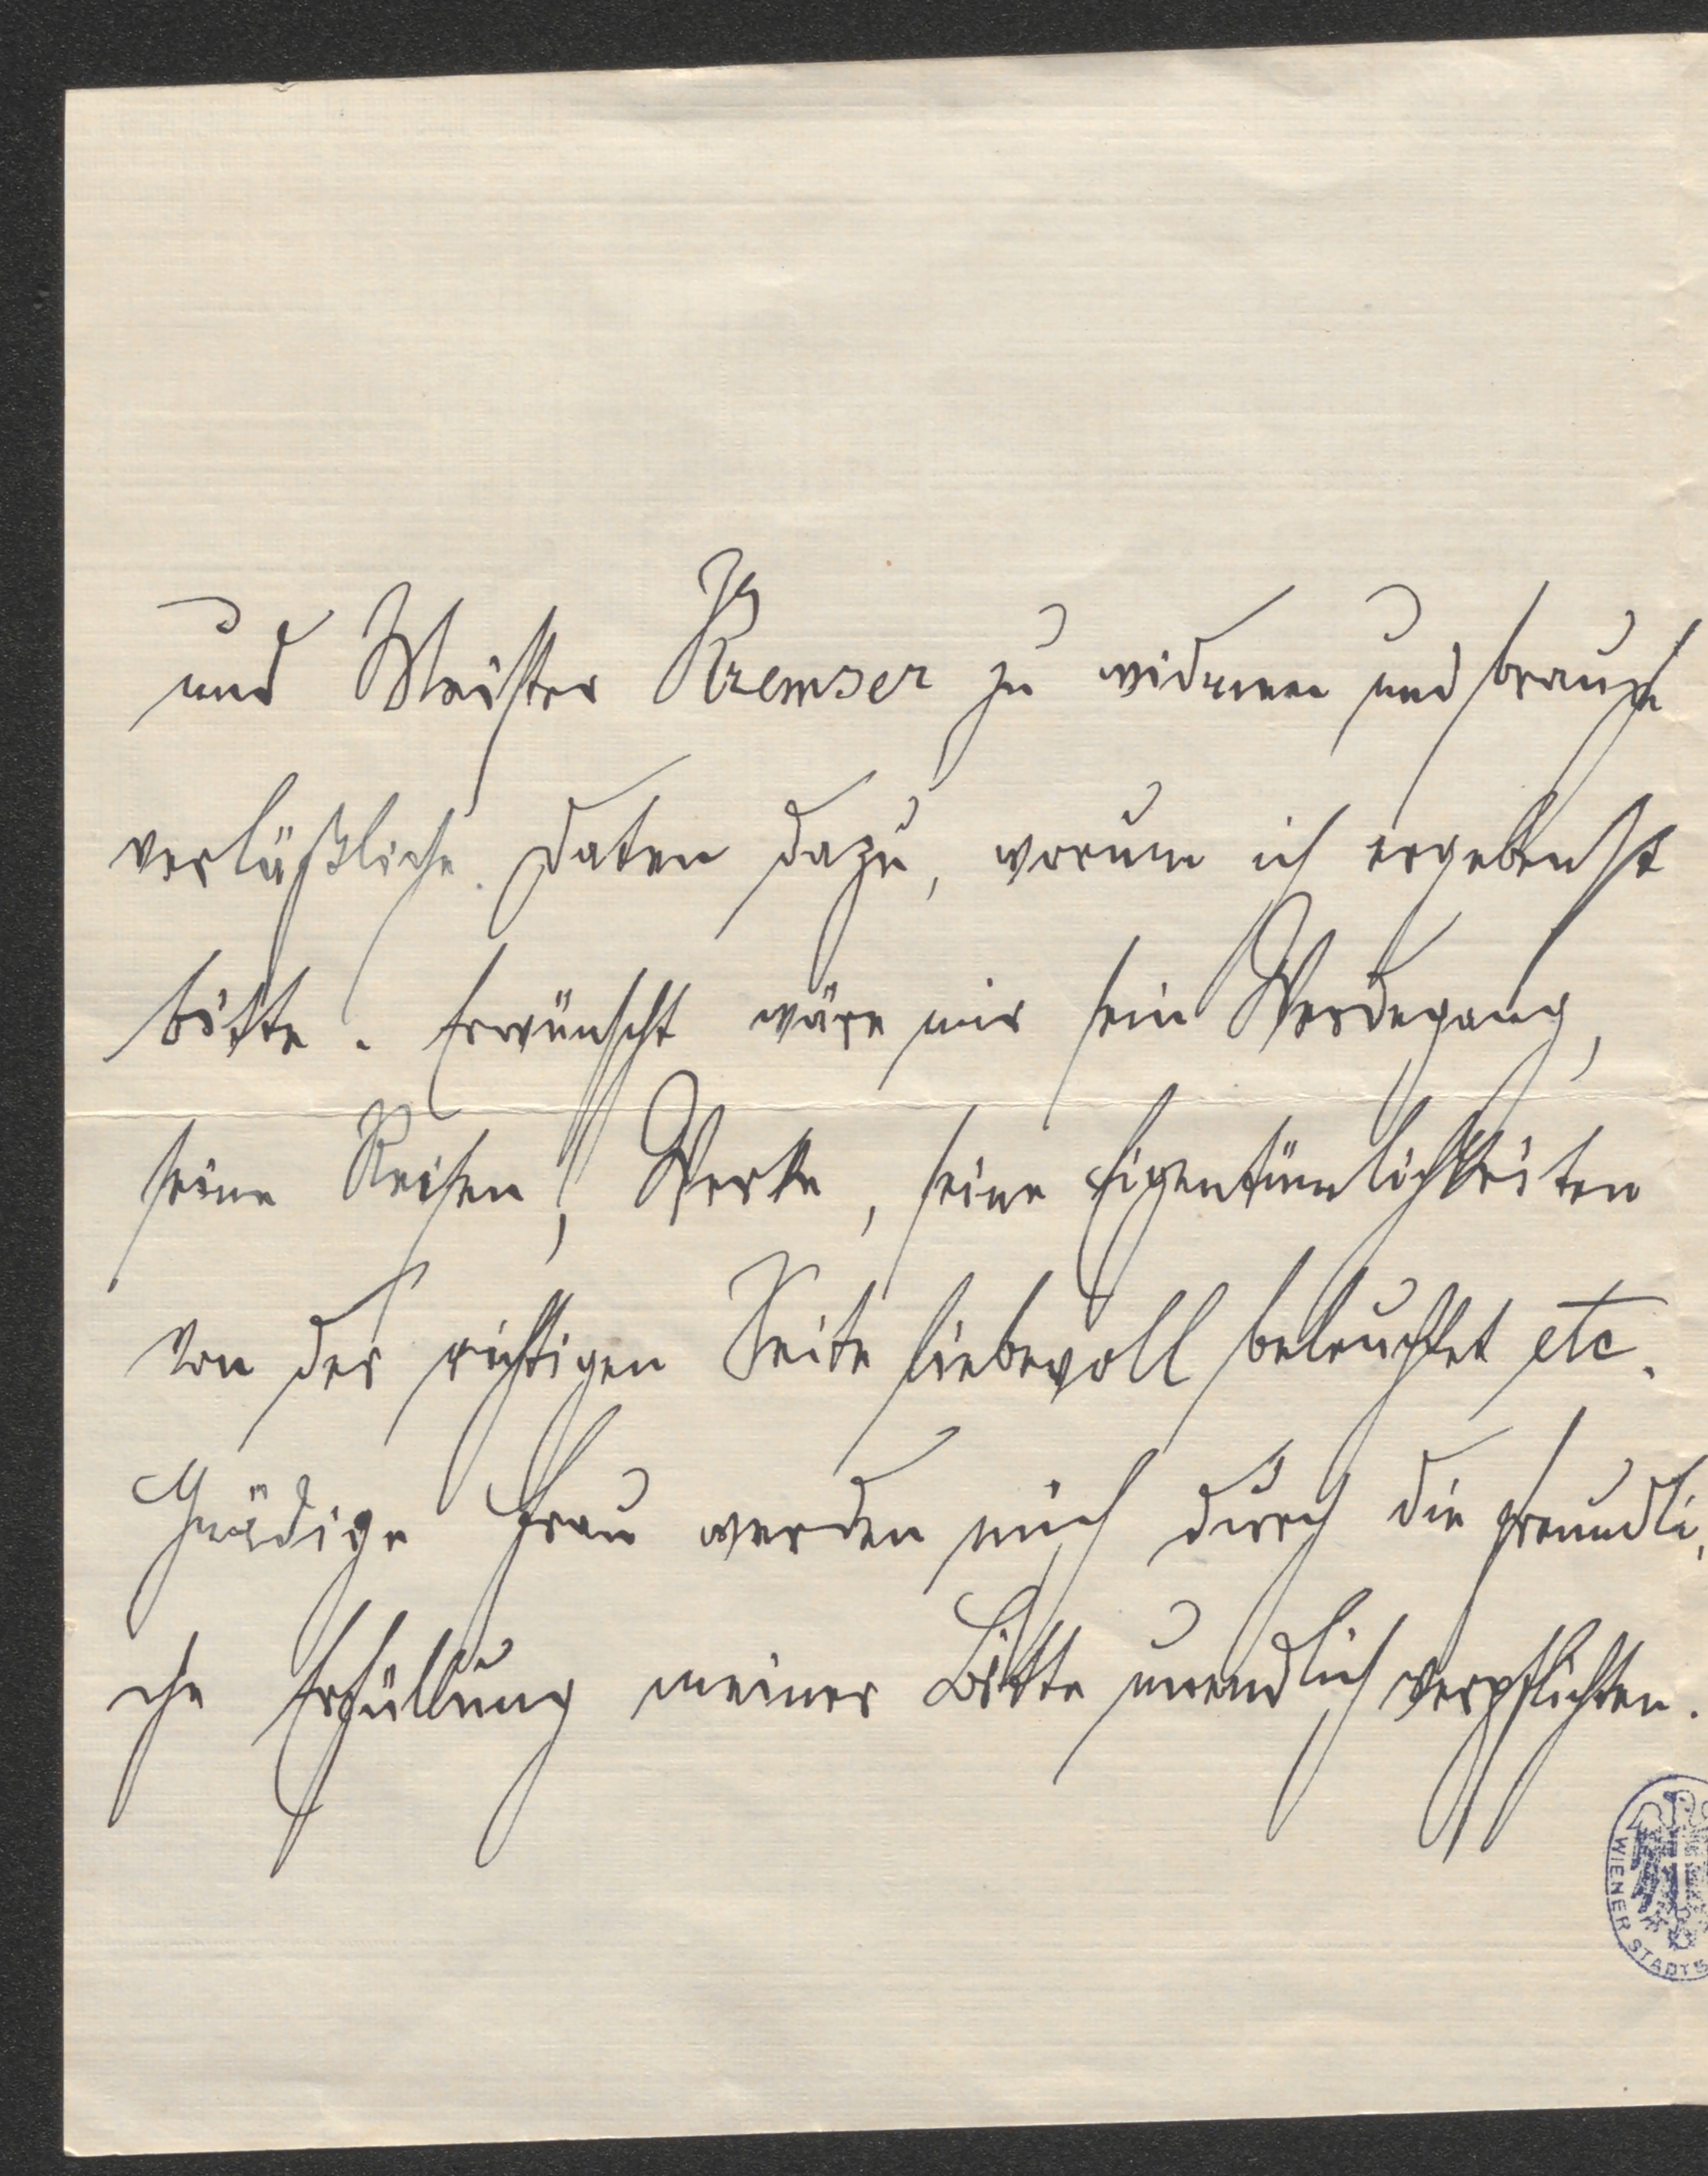 und Meister Kremser zu widmen und brauch
verläßliche Daten dazu, worum ich ergebenst
bitte. Erwünscht wäre mir sein Werdegang,
seine Reisen, Werke, seine Eigentümlichkeiten
von der richtigen Seite liebevoll beleuchtet etc.
Gnädige Frau werden mich durch die freundli,
che Erfüllung meiner Bitte unendlich verpflichten.
WIENER STADT